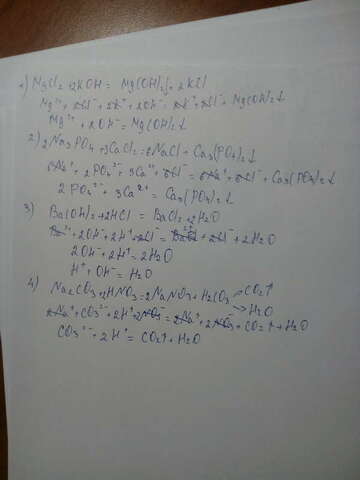 1) MgCl₂ + 2KOH = Mg(OH)₂↓ + 2KCl
Mg²⁺ + 2Cl⁻ + 2K⁺ + 2OH⁻ = 2K⁺ + 2Cl⁻ + Mg(OH)₂↓
Mg²⁺ + 2OH⁻ = Mg(OH)₂↓
2) 2Na₃PO₄ + 3CaCl₂ = 6NaCl + Ca₃(PO₄)₂↓
6Na⁺ + 2PO₄³⁻ + 3Ca²⁺ + 6Cl⁻ = 6Na⁺ + 6Cl⁻ + Ca₃(PO₄)₂↓
2PO₄³⁻ + 3Ca²⁺ = Ca₃(PO₄)₂↓
3) Ba(OH)₂ + 2HCl = BaCl₂ + 2H₂O
Ba²⁺ + 2OH⁻ + 2H⁺ + 2Cl⁻ = Ba²⁺ + 2Cl⁻ + 2H₂O
2OH⁻ + 2H⁺ = 2H₂O
H⁺ + OH⁻ = H₂O
4) Na₂CO₃ + 2HNO₃ = 2NaNO₃ + H₂CO₃ CO₂↑
H₂O
2Na⁺ + CO₃²⁻ + 2H⁺ + 2NO₃⁻ = 2Na⁺ + 2NO₃⁻ + CO₂↑ + H₂O
CO₃²⁻ + 2H⁺ = CO₂↑ + H₂O